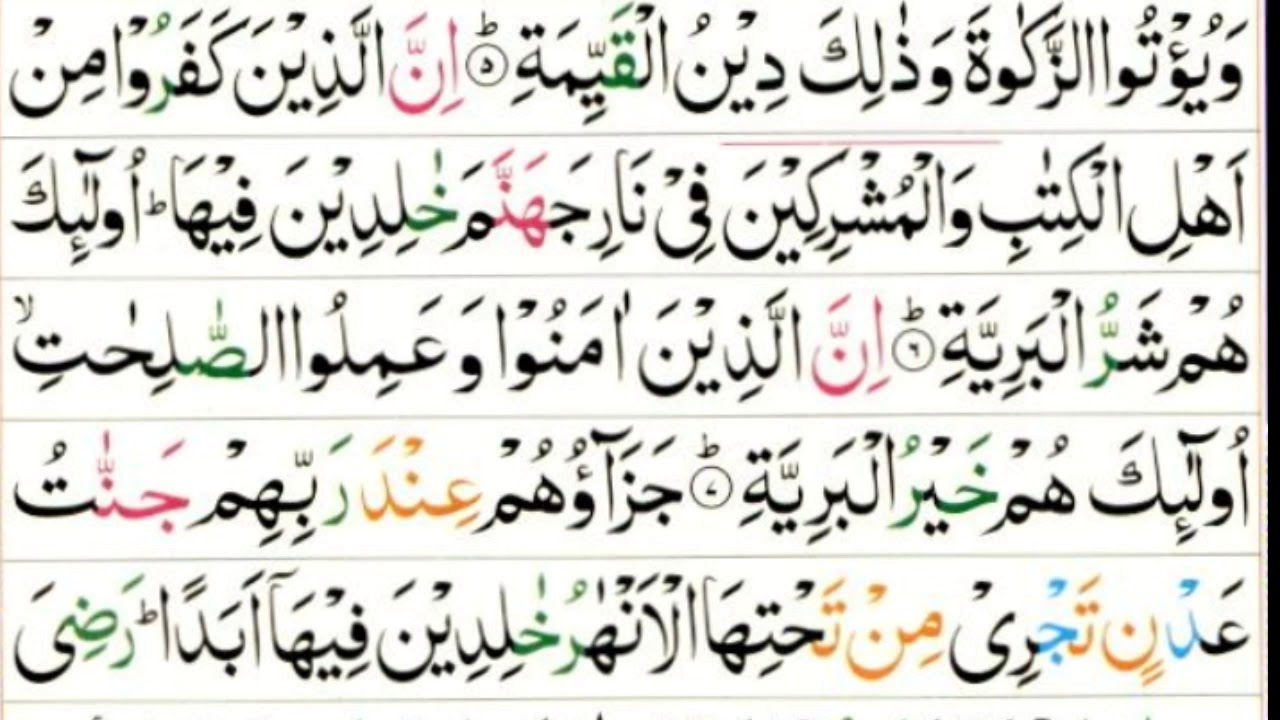 وَيُؤْتُوا الزَّكٰوةَ وَذٰلِكَ دِيْنُ الْقَيِّمَةِ ؕ ۵ اِنَّ الَّذِيْنَ كَفَرُوْا مِنْ
اَهْلِ الْكِتٰبِ وَالْمُشْرِكِيْنَ فِيْ نَارِ جَهَنَّمَ خٰلِدِيْنَ فِيْهَا ؕ اُولٰٓئِكَ
هُمْ شَرُّ الْبَرِيَّةِ ؕ ۶ اِنَّ الَّذِيْنَ اٰمَنُوْا وَعَمِلُوا الصّٰلِحٰتِ ۙ
اُولٰٓئِكَ هُمْ خَيْرُ الْبَرِيَّةِ ؕ ۷ جَزَآؤُهُمْ عِنْدَ رَبِّهِمْ جَنّٰتُ
عَدْنٍ تَجْرِيْ مِنْ تَحْتِهَا الْاَنْهٰرُ خٰلِدِيْنَ فِيْهَآ اَبَدًا ؕ رَضِيَ